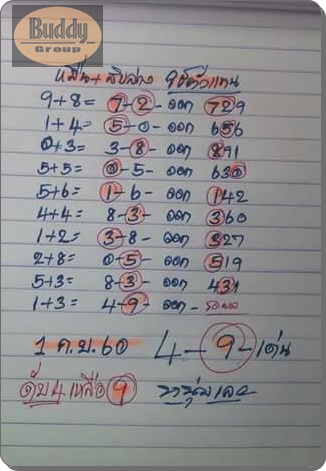 Buddy
Group
หมื่น+สิบล่าง ใช้ตัวแทน
9+8= 7-2- ออก 729
1+4= 5-0- ออก 656
0+3= 3-8- ออก 891
5+5= 0-5- ออก 630
5+6= 1-6- ออก 142
4+4= 8-3- ออก 360
1+2= 3-8- ออก 327
2+8= 0-5- ออก 519
5+3= 8-3- ออก 431
1+3= 4-9- ออก - รอผล
1 ก.ย.60 4-9-เด่น
ดับ 4 เหลือ 9